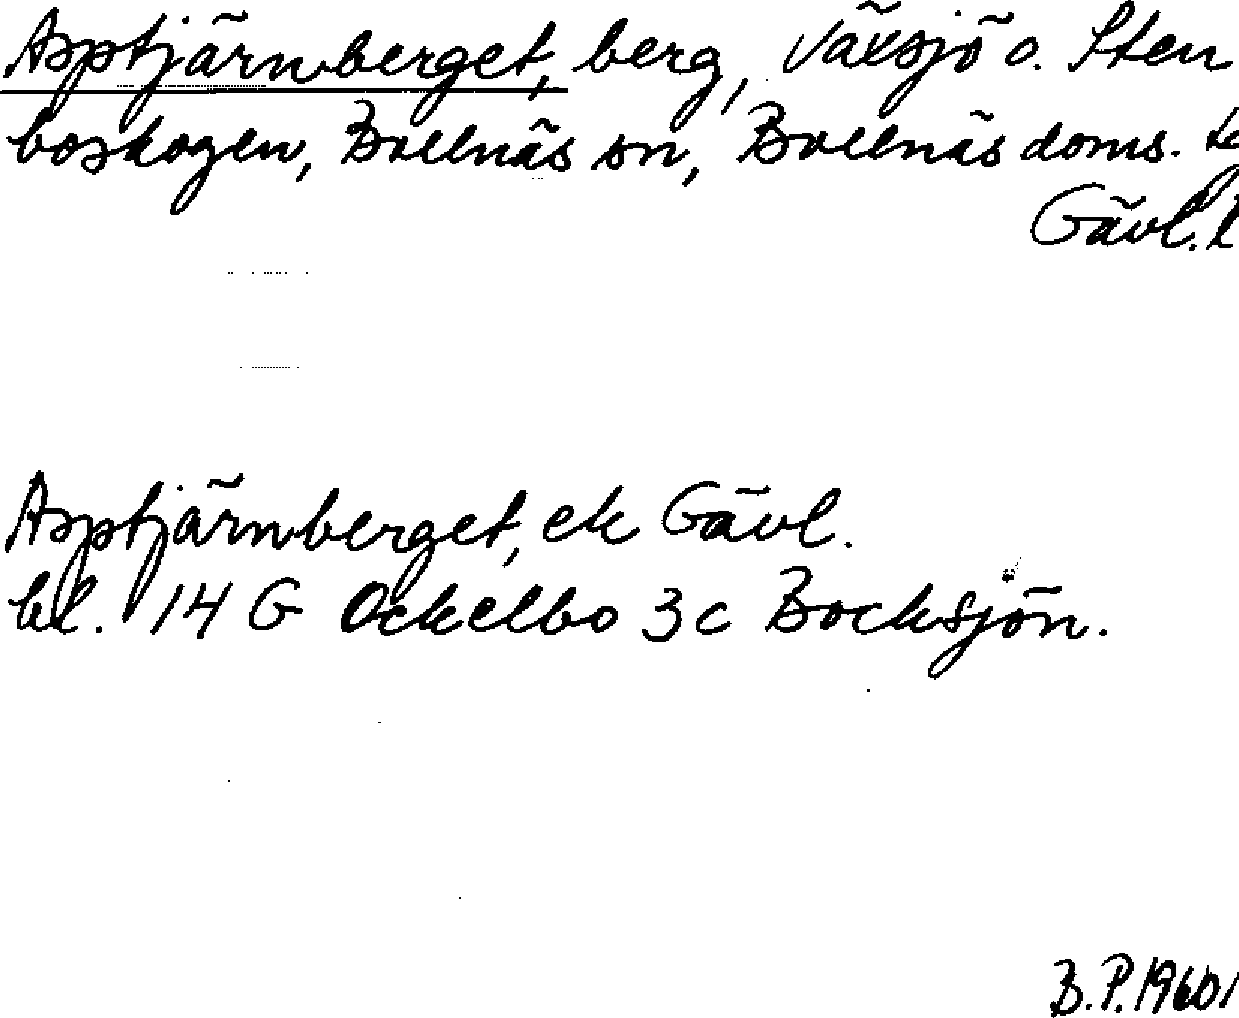 Asptjärnberget, berg, Växsjö o. Sten
boskogen, Bollnäs sn, Bollnäs doms.
Gävl. l
Asptjärnberget, ek Gävl.
bl. 14 G Ockelbo 3c Bocksjön.
B.P. 1960